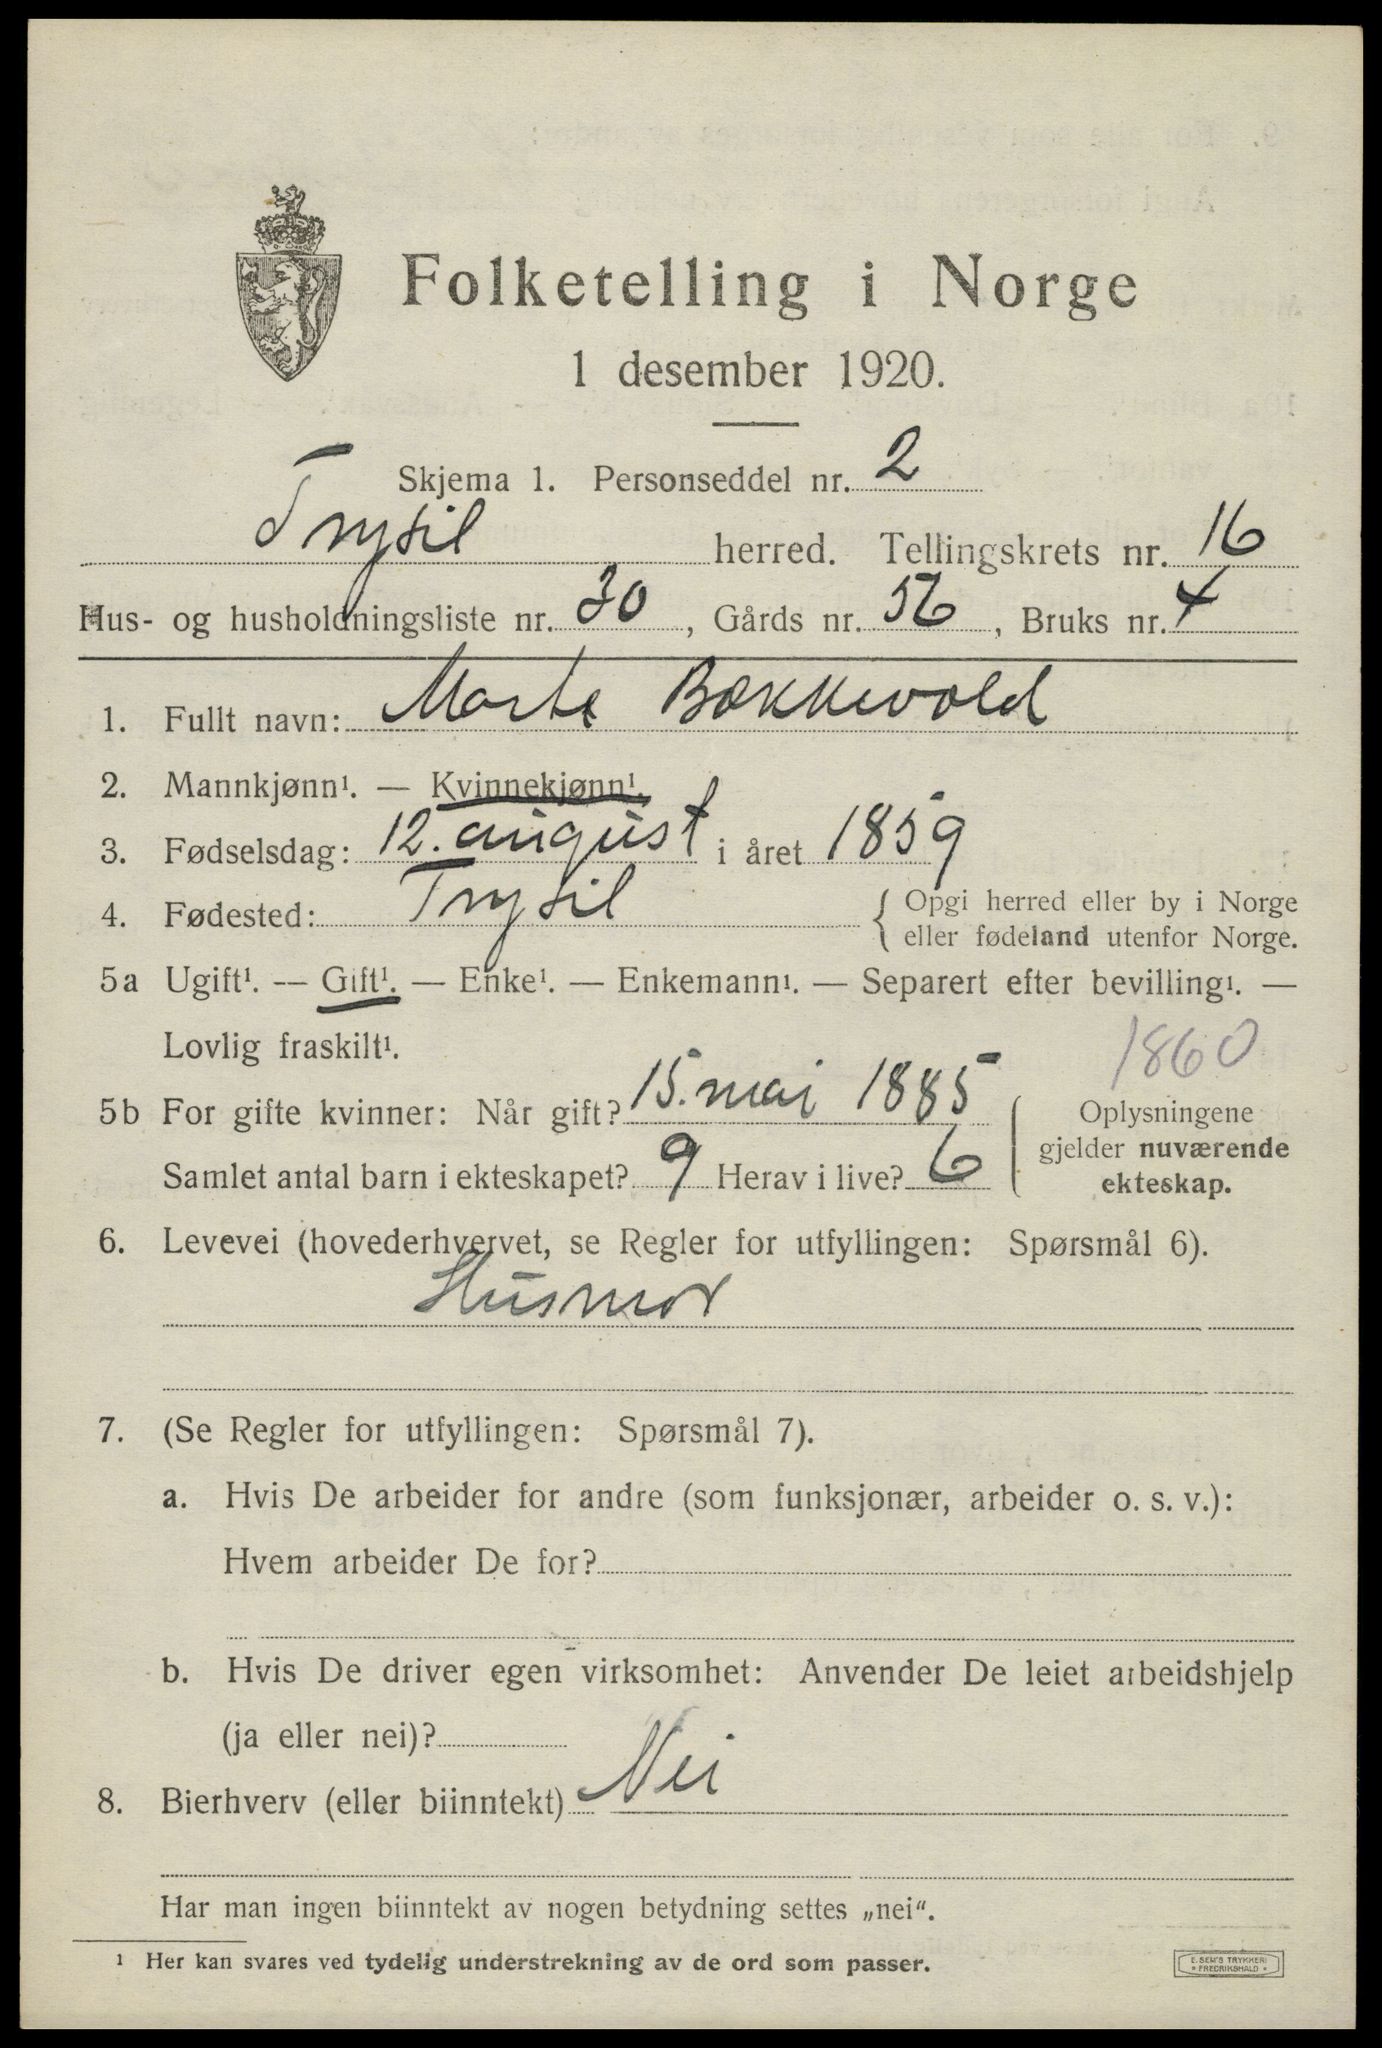 Folketelling i Norge
1 desember 1920.
Skjema 1. Personseddel nr. 2
Trysil herred. Tellingskrets nr. 16
Hus- og husholdningsliste nr. 30, Gårds nr. 56, Bruks nr. 4
1. Fullt navn: Marte Bækkevold
2. Mannkjønn¹. — Kvinnekjønn¹.
3. Fødselsdag: 12. august i året 1859
4. Fødested: Trysil { Opgi herred eller by i Norge
eller fødeland utenfor Norge.
5a Ugift¹. — Gift¹. — Enke¹. — Enkemann¹. — Separert efter bevilling¹. —
Lovlig fraskilt¹.
1860
5b For gifte kvinner: Når gift? 15. mai 1885 { Oplysningene
gjelder nuværende
ekteskap.
Samlet antal barn i ekteskapet? 9 Herav i live? 6
6. Levevei (hovederhvervet, se Regler for utfyllingen: Spørsmål 6).
Husmor
7. (Se Regler for utfyllingen: Spørsmål 7).
a. Hvis De arbeider for andre (som funksjonær, arbeider o. s. v.):
Hvem arbeider De for?
b. Hvis De driver egen virksomhet: Anvender De leiet arbeidshjelp
(ja eller nei)?
8. Bierhverv (eller biinntekt) Nei
Har man ingen biinntekt av nogen betydning settes „nei“.
¹ Her kan svares ved tydelig understrekning av de ord som passer.
E. SEM'S TRYKKERI
* FREDRIKSHALD *